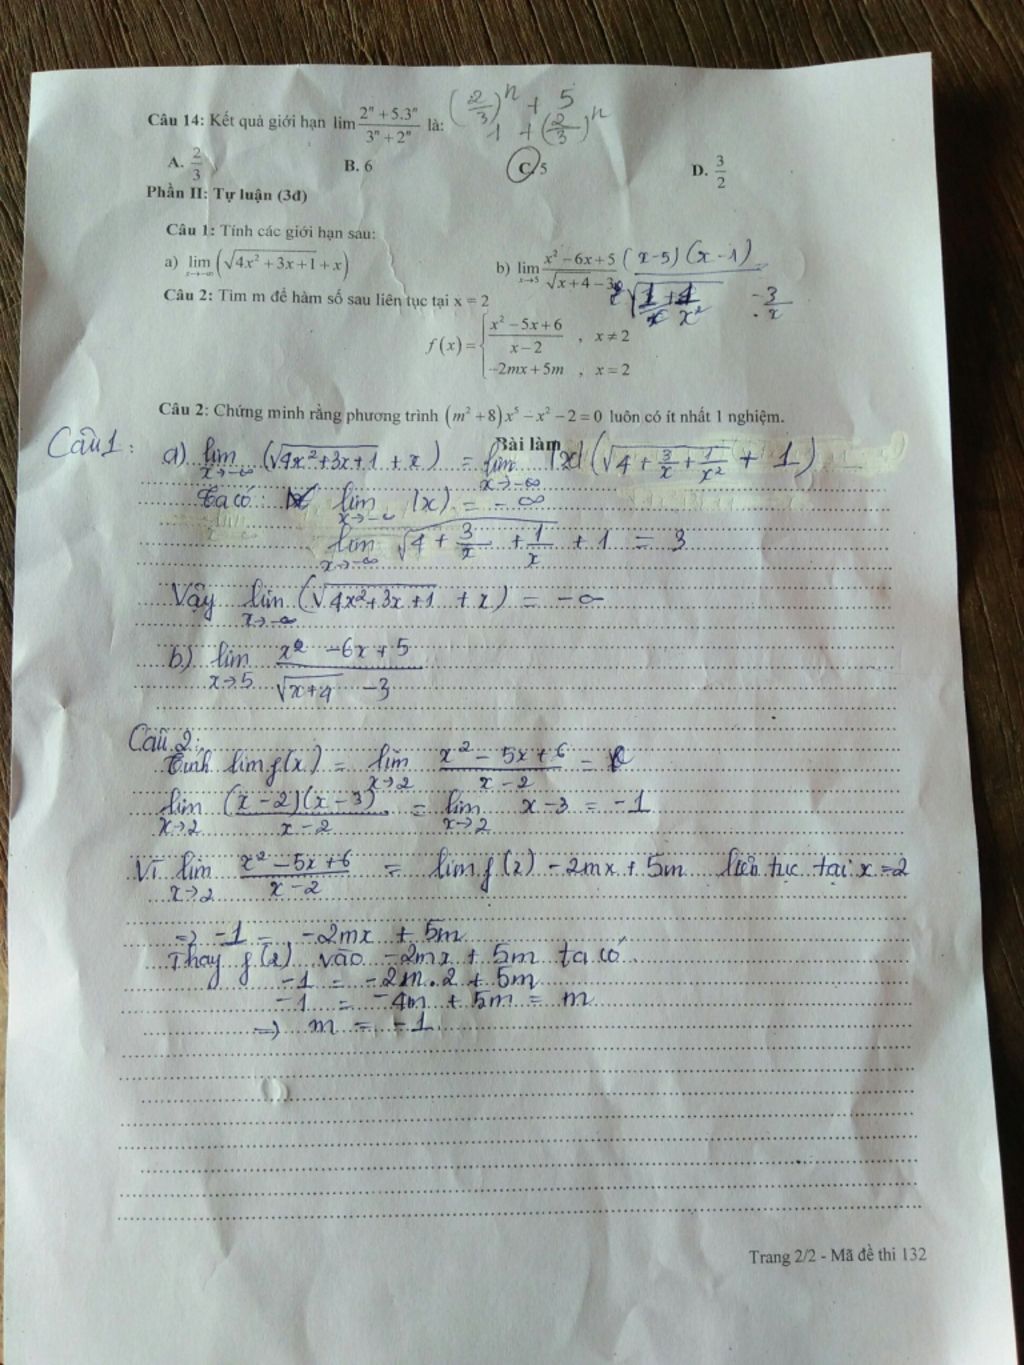 Câu 14: Kết quả giới hạn lim (2^n + 5.3^n)/(3^n + 2^n) là: ((2/3)^n + 5)/(1 + (2/3)^n)
A. 2/3 B. 6 C. 5 D. 3/2
Phần II: Tự luận (3đ)
Câu 1: Tính các giới hạn sau:
a) lim x→-∞ (√(4x² + 3x + 1) + x) b) lim x→5 (x² - 6x + 5)/(√(x+4) - 3) (x-5)(x-1)
√(1/x + 4/x²) - 3/x
Câu 2: Tìm m để hàm số sau liên tục tại x = 2
f(x) = { (x² - 5x + 6)/(x - 2) , x ≠ 2
-2mx + 5m , x = 2
Câu 2: Chứng minh rằng phương trình (m² + 8)x⁵ - x² - 2 = 0 luôn có ít nhất 1 nghiệm.
Bài làm
Câu 1:
a) lim x→-∞ (√(4x²+3x+1) + x) = lim x→-∞ |x| (√(4 + 3/x + 1/x²) + 1)
Ta có: lim x→-∞ (x) = -∞
lim x→-∞ √(4 + 3/x + 1/x) + 1 = 3
Vậy lim x→-∞ (√(4x²+3x+1) + x) = -∞
b) lim x→5 (x² - 6x + 5)/(√(x+4) - 3)
Câu 2:
Tính lim f(x) = lim x→2 (x² - 5x + 6)/(x - 2) =
lim x→2 ((x-2)(x-3))/(x-2) = lim x→2 x-3 = -1
Vì lim x→2 (x² - 5x + 6)/(x-2) = lim f(2) - 2mx + 5m liên tục tại x = 2
=> -1 = -2mx + 5m
Thay f(2) vào -2mx + 5m ta có
-1 = -2m.2 + 5m
-1 = -4m + 5m = m
=> m = -1
Trang 2/2 - Mã đề thi 132